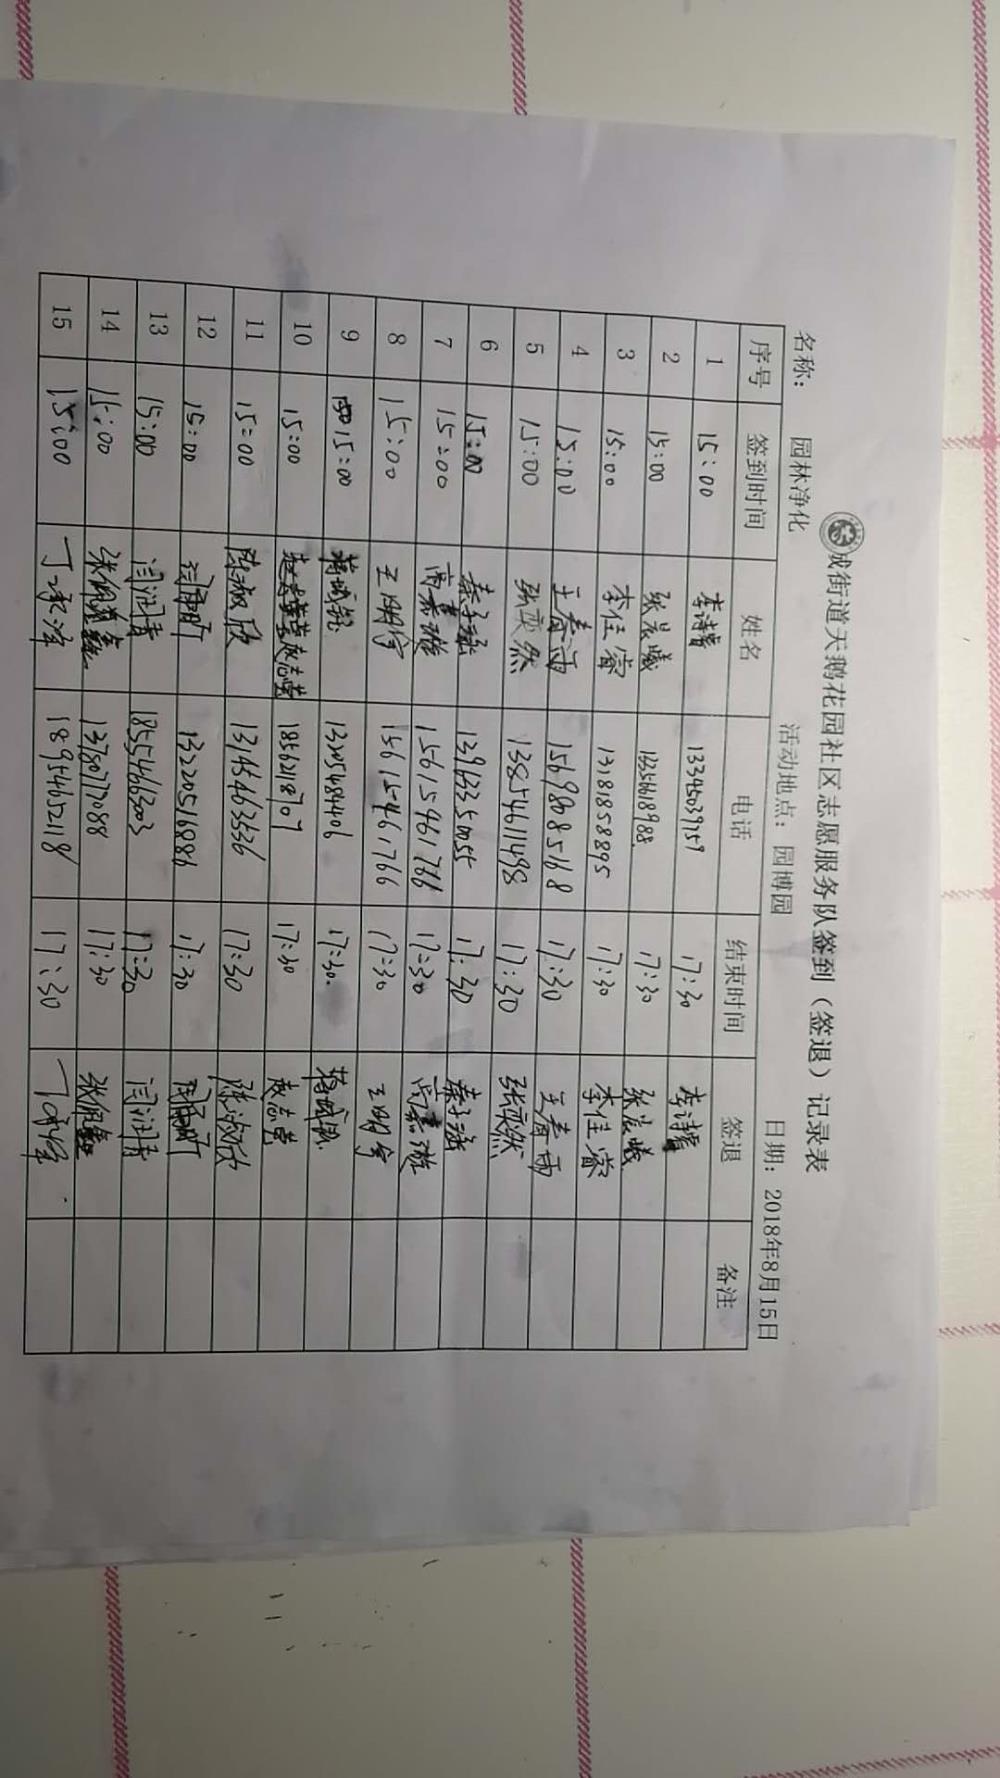 成街道天鹅花园社区志愿服务队签到（签退）记录表
名称： 园林净化 活动地点：园博园 日期：2018年8月15日
序号 签到时间 姓名 电话 结束时间 签退 备注
1 15:00 李诗 17:30 李诗
2 15:00 张晨曦 13356618988 17:30 张晨曦
3 15:00 李佳睿 13181858895 17:30 李佳睿
4 15:00 王春雨 15698085168 17:30 王春雨
5 15:00 张奕然 13854611498 17:30 张奕然
6 15:00 秦子涵 17:30 秦子涵
7 15:00 高嘉璇 15615461766 17:30 高嘉璇
8 15:00 王明宇 15615461766 17:30 王明宇
9 15:00 17:30
10 15:00 赵志莹 18562118707 17:30 赵志莹
11 15:00 陈淑欣 13145463536 17:30 陈淑欣
12 15:00 13220516886 17:30
13 15:00 闫润青 18554663003 17:30 闫润青
14 15:00 13780777088 17:30
15 15:00 18954652118 17:30